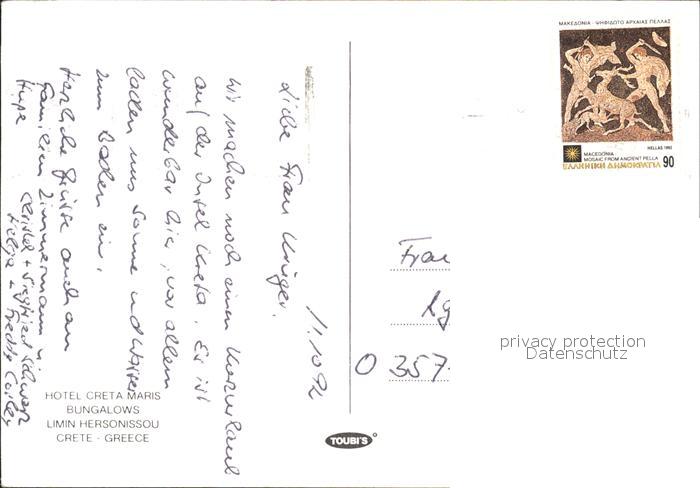 1.10.92
Liebe Frau Krüger,
Wir machen noch einen Kurzurlaub
auf der Insel Kreta. Es ist
wunderbar hier, vor allem
laden uns Sonne und Wasser
zum Baden ein.
Herzliche Grüße auch an
Familien Zimmermann u.
Christel + Siegfried
Helga + Freddy
HOTEL CRETA MARIS
BUNGALOWS
LIMIN HERSONISSOU
CRETE - GREECE
TOUBI'S
ΜΑΚΕΔΟΝΙΑ · ΨΗΦΙΔΩΤΟ ΑΡΧΑΙΑΣ ΠΕΛΛΑΣ
HELLAS 1992
MACEDONIA
MOSAIC FROM ANCIENT PELLA
ΕΛΛΗΝΙΚΗ ΔΗΜΟΚΡΑΤΙΑ 90
Frau
O 357
privacy protection
Datenschutz